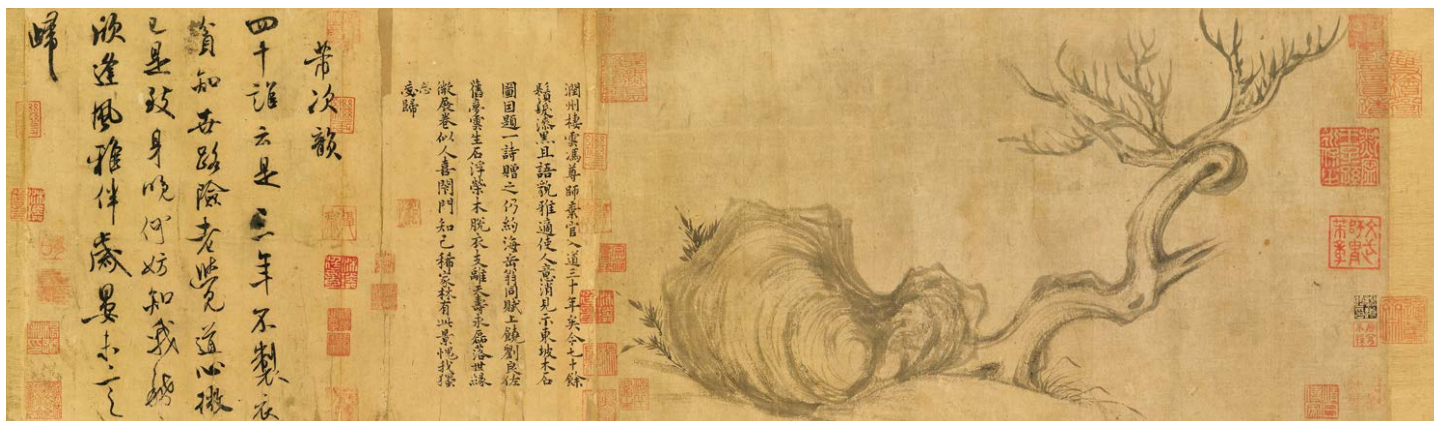 潤州棲雲馮尊師棄官入道三十年矣今七十餘
鬚髮漆黑且語貌雅適使人意消見示東坡木石
圖因題一詩贈之仍約海岳翁同賦上饒劉良佐
舊夢雲生石浮榮木脫衣支離天壽永磊落世緣
微展卷似人喜閉門知己稀家林有此景愧我獨
忘
受歸
芾次韻
四十誰云是三年不製衣
貧知世路險老覺道心微
已是致身晚何妨知我稀
欣逢風雅伴歲晏未言
歸